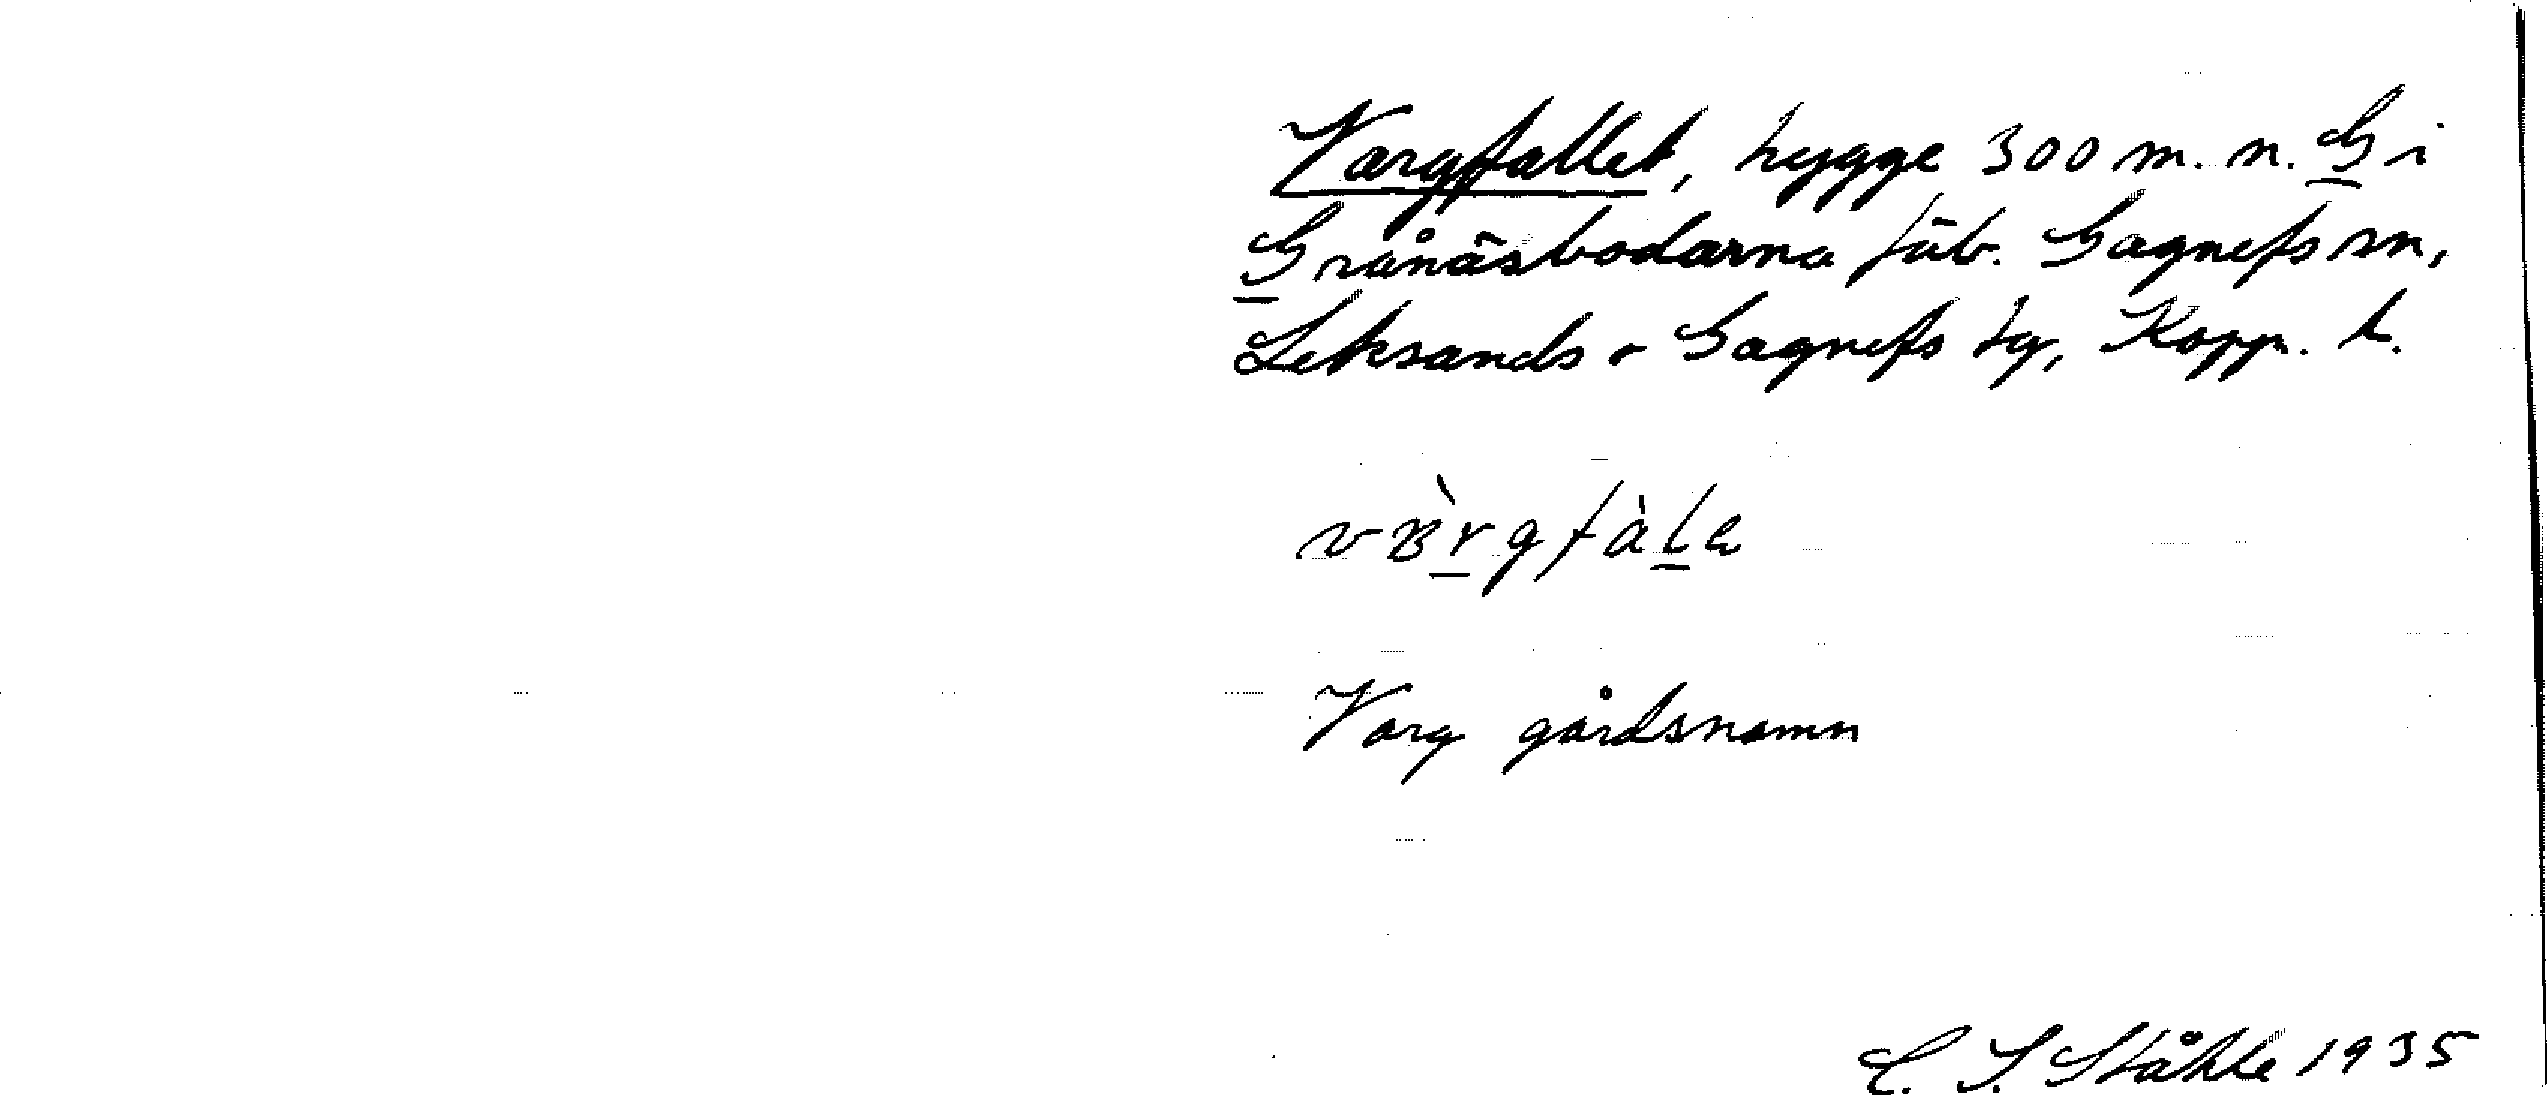 Vargfallet, hygge 300 m. n. G i
Grånäsbodarna fäb. Gagnefs sn,
Leksands o Gagnefs tg, Kopp. l.
Varg gårdsnamn
C. I. Ståhle 1935